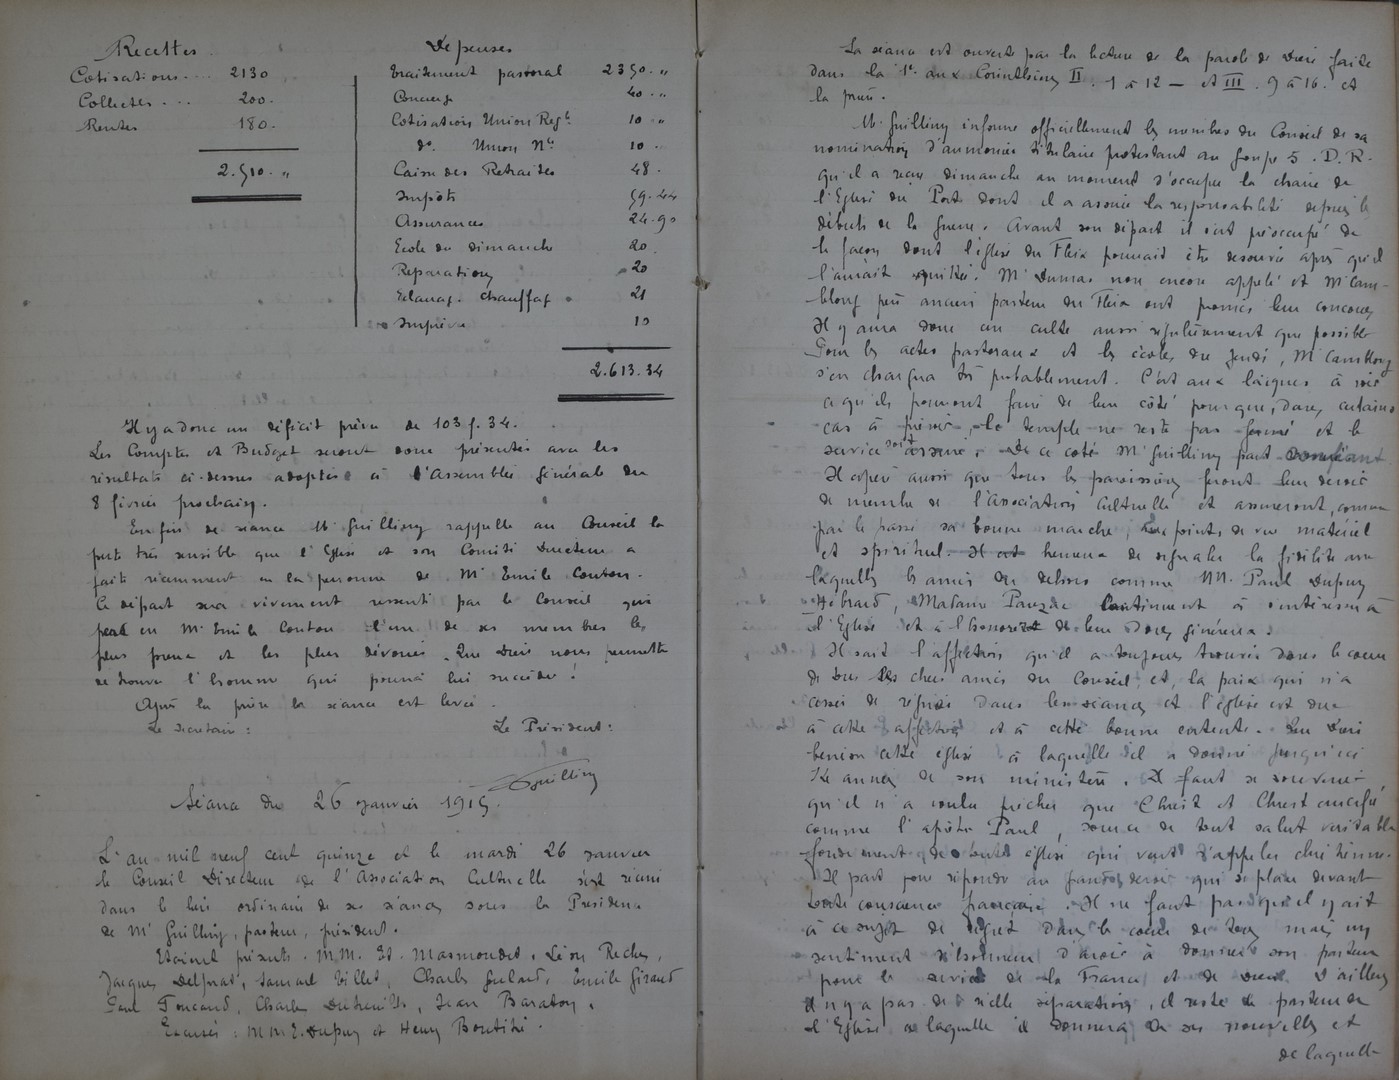 Recettes
Cotisations.... 2130
Collectes ... 200.
Rentes 180.
2.510. "
Dépenses
Traitement pastoral 2350. "
Concierge 40. "
Cotisation Union Régle 10. "
do. Union Nle 10.
Caisse des Retraites 48.
Impôts 59.44
Assurances 24.90
Ecole du dimanche 20.
Réparations 20
Eclairag. Chauffag. 21
Imprévu 10
2.613.34
Il y a donc un déficit prévu de 103 f. 34.
Les Comptes et Budget seront donc présentés avec les
résultats ci-dessus adoptés à l'Assemblée générale du
8 février prochain.
En fin de séance Mr Guilling rappelle au Conseil la
perte très sensible que l'Eglise et son Comité Directeur a
faite récemment en la personne de Mr Emile Couton.
Ce départ sera vivement ressenti par le Conseil qui
perd en Mr Emile Couton l'un de ses membres les
plus preux et les plus dévoués. Que Dieu nous permette
de trouver l'homme qui pourra lui succéder !
Après la prière la séance est levée.
Le secrétaire : Le Président :
Guilling
Séance du 26 janvier 1915.
L'an mil neuf cent quinze et le mardi 26 janvier
le Conseil Directeur de l'Association Cultuelle s'est réuni
dans le lieu ordinaire de ses séances sous la Présidence
de Mr Guilling, pasteur, président.
Etaient présents. MM. Et. Marmondet, Léon Reclus,
Jacques Delprat, Samuel Villet, Charles Goulard, Emile Giraud
Paul Foucaud, Charles Dutreuilh, Jean Baraton.
Excusés : MM. E. Dupuy et Henry Boutité.
La séance est ouverte par la lecture de la parole de Dieu faite
dans la 1e. aux Corinthiens II. 1 à 12 — et III. 9 à 16. et
la prière.
Mr Guilling informe officiellement les membres du Conseil de sa
nomination d'aumônier titulaire protestant au Groupe 5. D. R.
qu'il a reçue dimanche au moment d'occuper la chaire de
l'Eglise du Port dont il a assumé la responsabilité depuis le
début de la Guerre. Avant son départ il s'est préoccupé de
la façon dont l'église du Fleix pourrait être desservie après qu'il
l'aurait quittée. Mr Dumas non encore appelé et Mr Cam-
blong père ancien pasteur du Fleix ont promis leur concours
Il y aura donc un culte aussi régulièrement que possible
Pour les actes pastoraux et les écoles du jeudi, Mr Camblong
s'en chargera très probablement. C'est aux laïques à voir
ce qu'ils pourront faire de leur côté pour que, dans certains
cas à prévoir, le temple ne reste pas fermé et le
service soit assuré. De ce côté Mr Guilling part confiant
Il espère aussi que tous les paroissiens feront leur devoir
de membre de l'Association Cultuelle et assureront, comme
par le passé sa bonne marche, au point de vue matériel
et spirituel. Il est heureux de signaler la fidélité avec
laquelle les amis du dehors comme MM. Paul Dupuy
Hébrard, Madame Pauzat continuent à s'intéresser à
l'Eglise et à l'honorer de leurs dons généreux.
Il sait l'affection qu'il a toujours trouvée dans le coeur
de tous les chers amis du Conseil et, la paix qui n'a
cessé de régner dans les séances et l'église est due
à cette affection et à cette bonne entente. Que Dieu
bénisse cette église à laquelle il a donné jusqu'ici
années de son ministère. Il faut se souvenir
qu'il n'a voulu prêcher que Christ et Christ crucifié
comme l'apôtre Paul, source de tout salut véritable
fondement de toute église qui veut s'appeler chrétienne.
Il part pour répondre au grand devoir qui se place devant
toute conscience française. Il ne faut pas qu'il y ait
à ce sujet de regret dans le coeur de tous mais un
sentiment d'honneur d'avoir à donner son pasteur
pour le service de la France et de Dieu. D'ailleurs
il n'y a pas de réelle séparation, il reste le pasteur de
l'Eglise à laquelle il donnera de ses nouvelles et
de laquelle